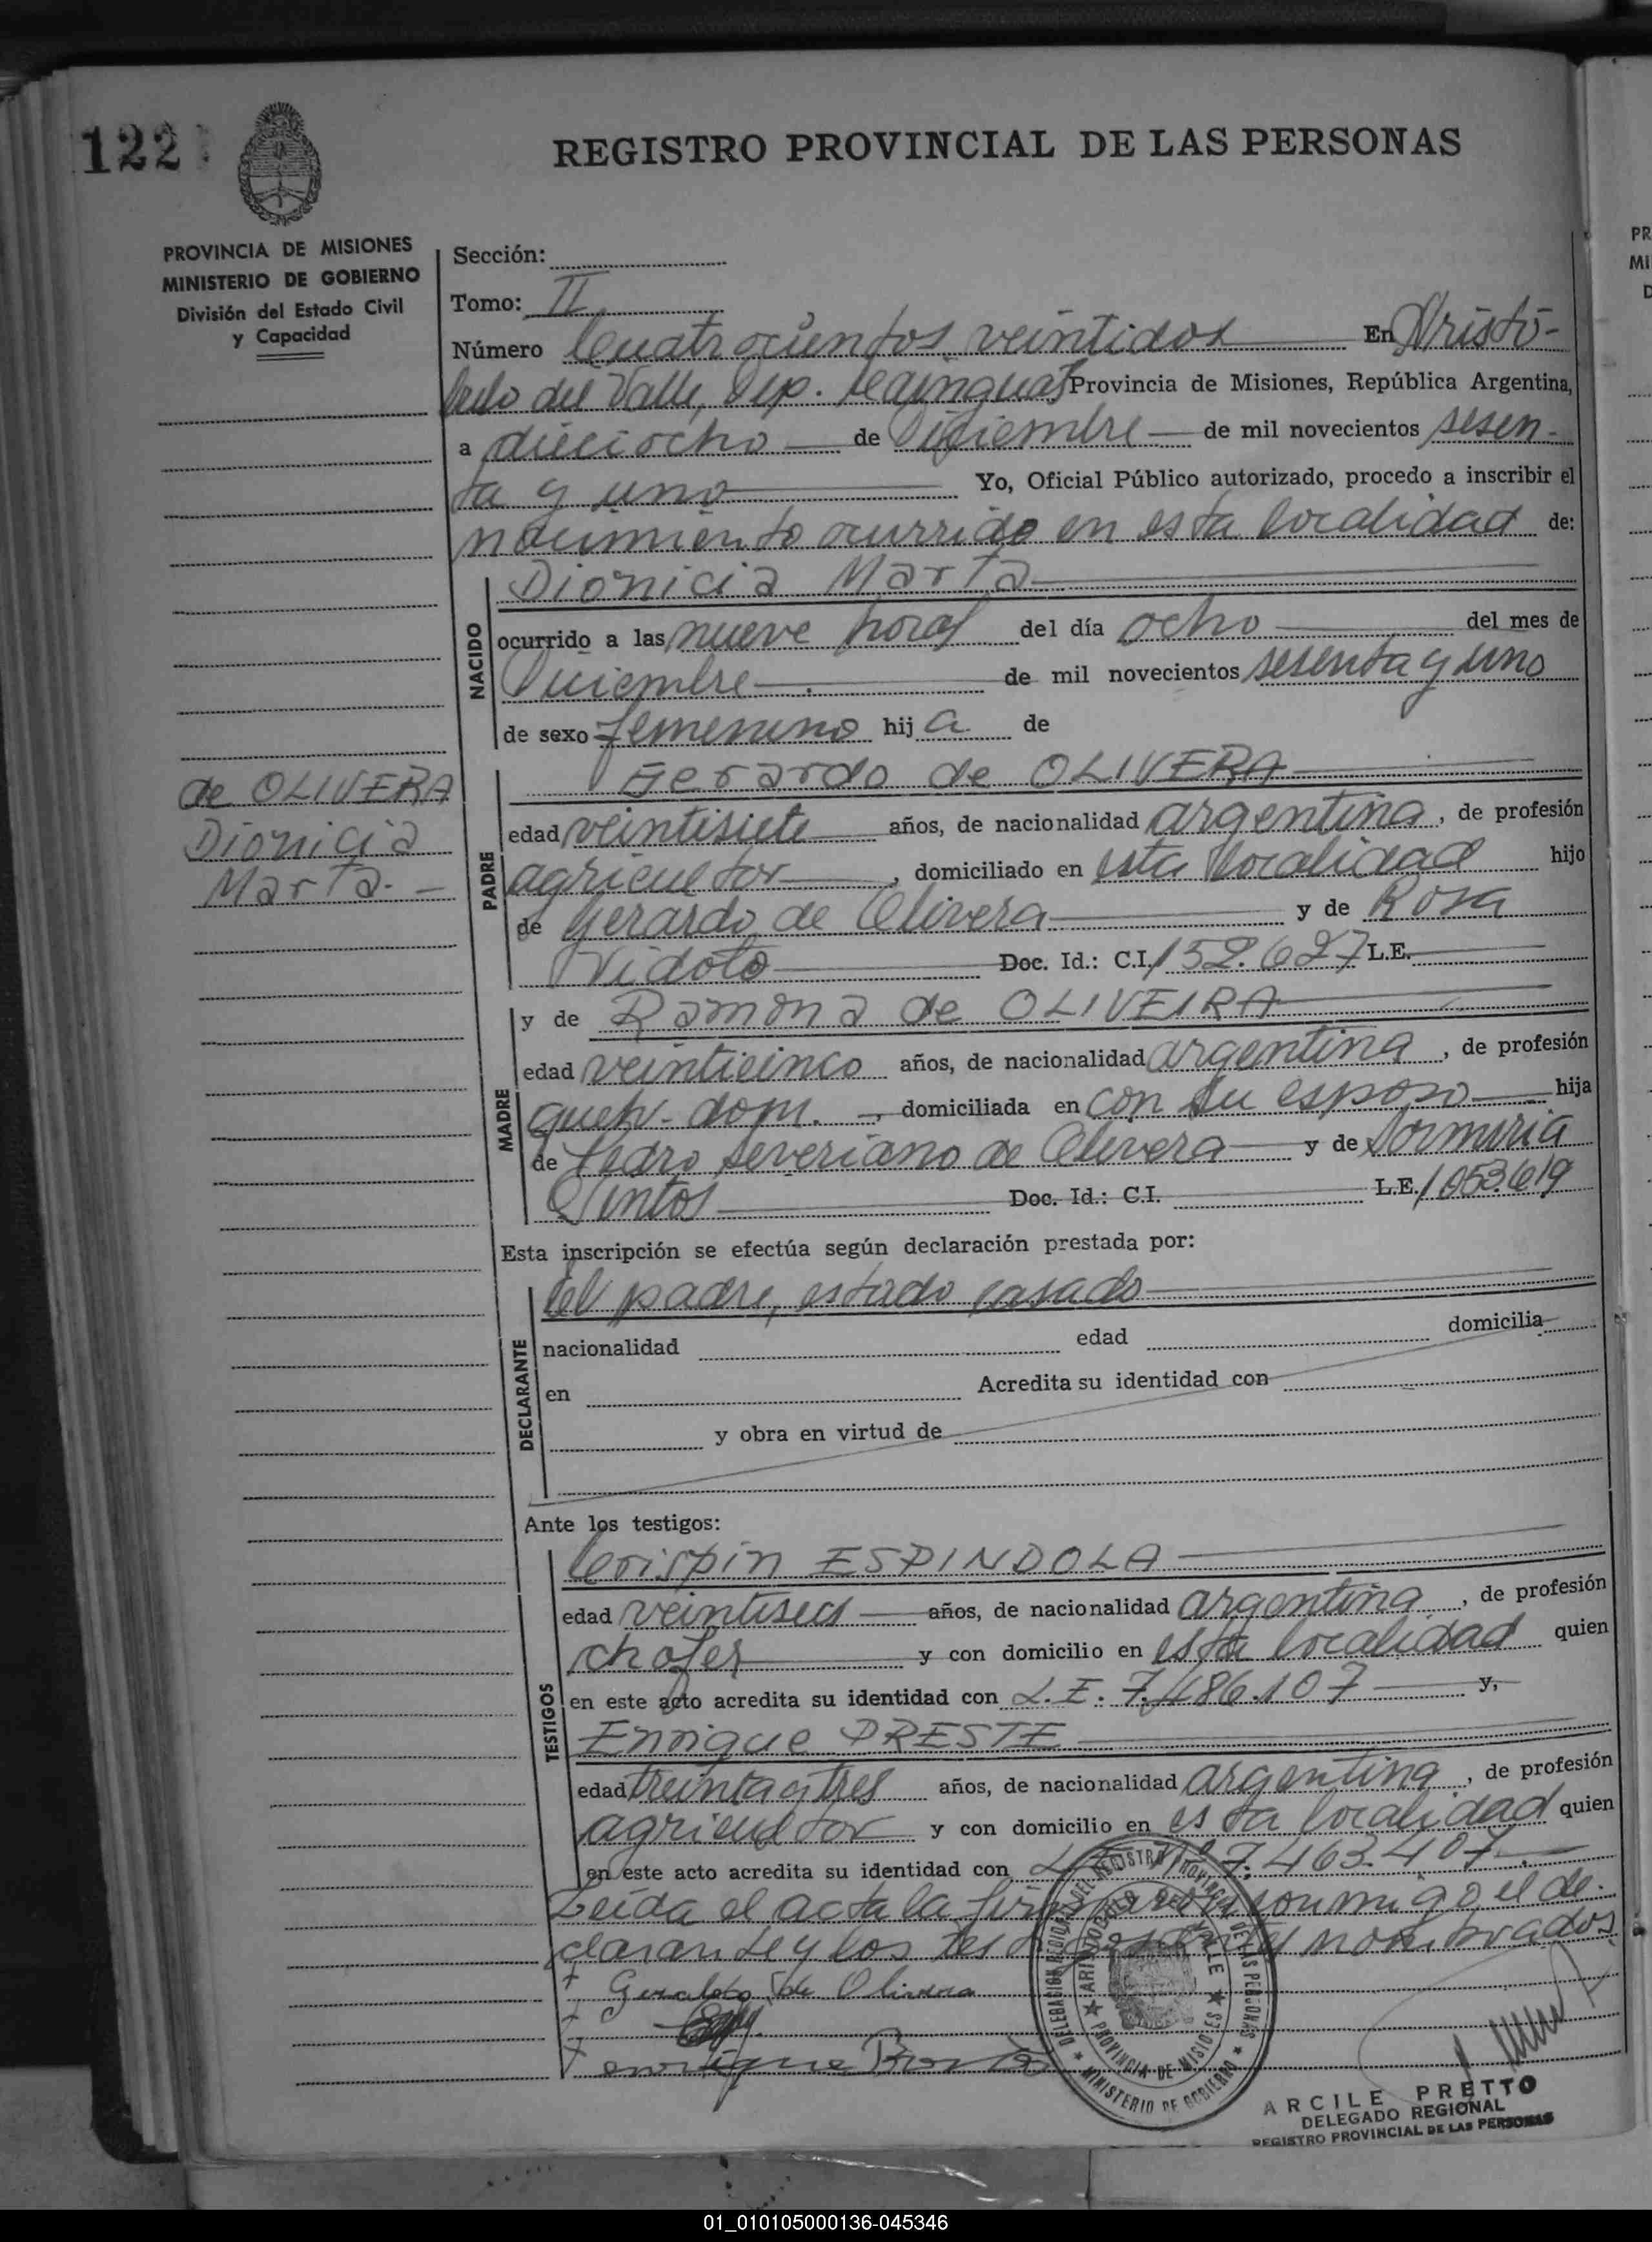 122
REGISTRO PROVINCIAL DE LAS PERSONAS
PROVINCIA DE MISIONES
MINISTERIO DE GOBIERNO
División del Estado Civil
y Capacidad
Sección:
Tomo: II
Número Cuatrocientos veintidos En Aristó-
bulo del Valle, Dep. Provincia de Misiones, República Argentina,
a dieciocho de Diciembre de mil novecientos sesen-
ta y uno Yo, Oficial Público autorizado, procedo a inscribir el
nacimiento ocurrido en esta localidad de:
Dionicia Marta
NACIDO
ocurrido a las nueve horas del día ocho del mes de
Diciembre de mil novecientos sesenta y uno
de sexo femenino hija de
de OLIVERA
Dionicia
Marta.-
PADRE
Gerardo de OLIVERA
edad veintisiete años, de nacionalidad argentina, de profesión
agricultor, domiciliado en esta localidad hijo
de Gerardo de Olivera y de Rosa
Vidoto Doc. Id.: C.I. 152.627 L.E.
MADRE
y de Ramona de OLIVEIRA
edad veinticinco años, de nacionalidad argentina, de profesión
queh. dom., domiciliada en con su esposo hija
de Pedro Severiano de Olivera y de
Doc. Id.: C.I. L.E. 1053.619
Esta inscripción se efectúa según declaración prestada por:
DECLARANTE
el padre, estado casado
nacionalidad edad domicilia
en Acredita su identidad con
y obra en virtud de
Ante los testigos:
TESTIGOS
Crispin ESPINDOLA
edad veintiseis años, de nacionalidad argentina, de profesión
chofer y con domicilio en esta localidad quien
en este acto acredita su identidad con L.E. 7.486.107 y,
Enrique PRESTE
edad treinta y tres años, de nacionalidad argentina, de profesión
agricultor y con domicilio en esta localidad quien
en este acto acredita su identidad con 7.463.407.-
Leída el acta la firmaron conmigo, el de-
clarante y los testigos nombrados
de Olivera
enrique
DELEGACION REGIONAL DEL REGISTRO PROVINCIAL DE LAS PERSONAS
ARISTOBULO DEL VALLE
PROVINCIA DE MISIONES
MINISTERIO DE GOBIERNO
ARCILE PRETTO
DELEGADO REGIONAL
REGISTRO PROVINCIAL DE LAS PERSONAS
01_010105000136-045346